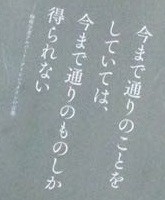 今まで通りのことを
していては、
今まで通りのものしか
得られない